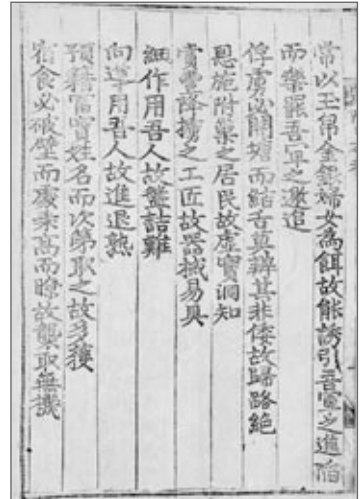 常以玉帛金銀婦女為餌故能誘引吾軍之進陷
而樂罷吾軍之邀追
俘虜必開塘而結舌莫辨其非倭故歸路絕
恩施附巢之居民故虛實洞知
賞豐降擄之工匠故器械易具
細作用吾人故盤詰難
向導用吾人故進退熟
預籍富室姓名而次第取之故多獲
宿食必破壁而處乘高而瞭故襲取無譏